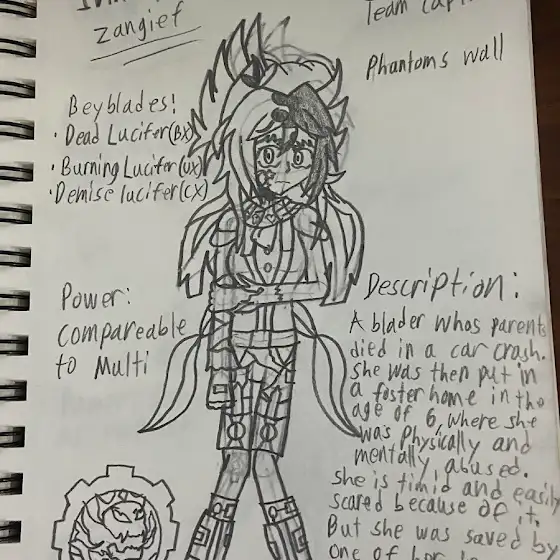 Zangief
Team
Phantoms wall
Beyblades!
• Dead Lucifer(BX)
• Burning Lucifer(UX)
• Demise lucifer(CX)
Power:
compareable
to Multi
Description:
A blader whos parents
died in a car crash.
she was then put in
a foster home in the
age of 6, where she
was physically and
mentally abused.
she is timid and easily
scared because of it.
But she was saved by
one of her